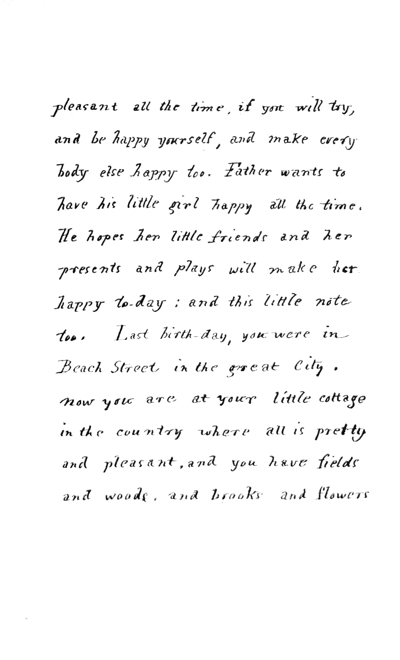 pleasant all the time, if you will try,
and be happy yourself, and make every
body else happy too. Father wants to
have his little girl happy all the time.
He hopes her little friends and her
presents and plays will make her
happy to-day; and this little note
too. Last birth-day, you were in
Beach Street in the great City.
now you are at your little cottage
in the country where all is pretty
and pleasant, and you have fields
and woods, and brooks and flowers